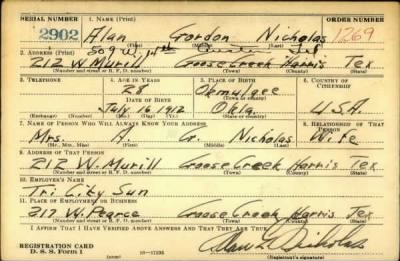 SERIAL NUMBER 1. NAME (Print) ORDER NUMBER
2902 Alan Gordon Nicholas 1269
(First) (Middle) (Last)
509 W. 14th
2. ADDRESS (Print)
212 W Murill Goose Creek Harris Tex
(Number and street or R. F. D. number) (Town) (County) (State)
3. TELEPHONE 4. AGE IN YEARS 5. PLACE OF BIRTH 6. COUNTRY OF CITIZENSHIP
28 Okmulgee
(Town or county)
DATE OF BIRTH
July 16 1912 Okla U.S.A.
(Exchange) (Number) (Mo.) (Day) (Yr.) (State or country)
7. NAME OF PERSON WHO WILL ALWAYS KNOW YOUR ADDRESS 8. RELATIONSHIP OF THAT PERSON
Mrs. A. G. Nicholas Wife
(Mr., Mrs., Miss) (First) (Middle) (Last)
9. ADDRESS OF THAT PERSON
212 W. Murill Goose Creek Harris Tex
(Number and street or R. F. D. number) (Town) (County) (State)
10. EMPLOYER'S NAME
Tri City Sun
11. PLACE OF EMPLOYMENT OR BUSINESS
217 W. Pearce Goose Creek Harris Tex
(Number and street or R. F. D. number) (Town) (County) (State)
I AFFIRM THAT I HAVE VERIFIED ABOVE ANSWERS AND THAT THEY ARE TRUE.
REGISTRATION CARD
D. S. S. Form 1
(Registrant's signature)